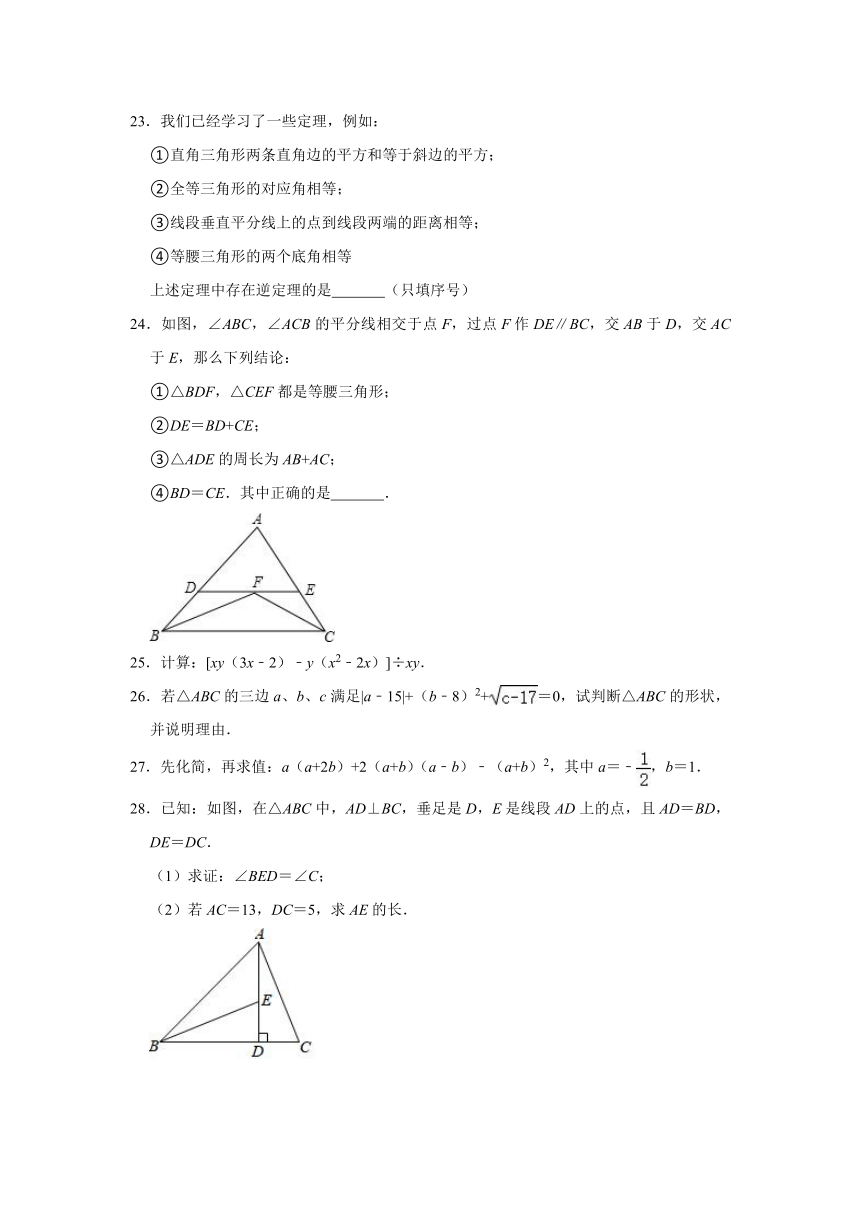 23．我们已经学习了一些定理，例如：
①直角三角形两条直角边的平方和等于斜边的平方；
②全等三角形的对应角相等；
③线段垂直平分线上的点到线段两端的距离相等；
④等腰三角形的两个底角相等
上述定理中存在逆定理的是_______（只填序号）
24．如图，∠ABC，∠ACB 的平分线相交于点 F，过点 F 作 DE∥BC，交 AB 于 D，交 AC
于 E，那么下列结论：
①△BDF，△CEF 都是等腰三角形；
②DE＝BD+CE；
③△ADE 的周长为 AB+AC；
④BD＝CE．其中正确的是_______．
A
D F E
B C
25．计算：[xy（3x﹣2）﹣y（x²﹣2x）]÷xy．
26．若△ABC 的三边 a、b、c 满足|a﹣15|+（b﹣8）²+√(c-17)=0，试判断△ABC 的形状，
并说明理由．
27．先化简，再求值：a（a+2b）+2（a+b）（a﹣b）﹣（a+b）²，其中 a＝﹣1/2，b＝1．
28．已知：如图，在△ABC 中，AD⊥BC，垂足是 D，E 是线段 AD 上的点，且 AD＝BD，
DE＝DC．
（1）求证：∠BED＝∠C；
（2）若 AC＝13，DC＝5，求 AE 的长．
A
E
B D C